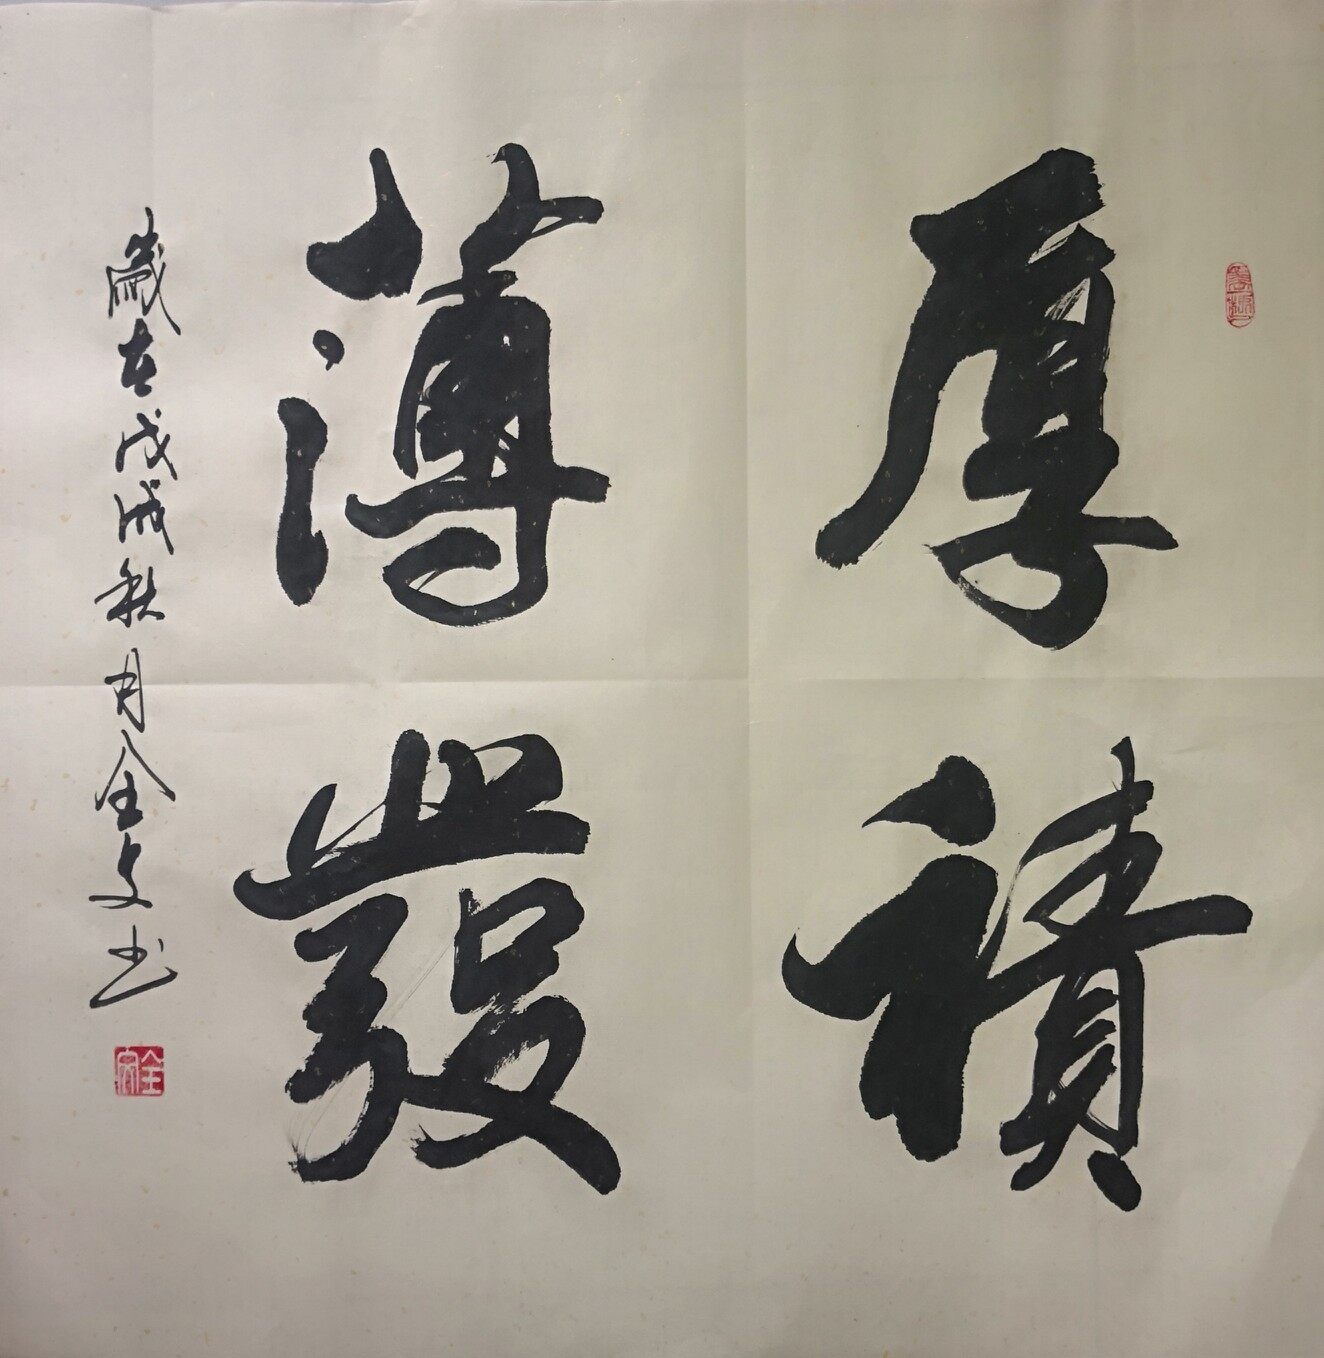 厚積
薄發
歲在戊戌秋月全文书